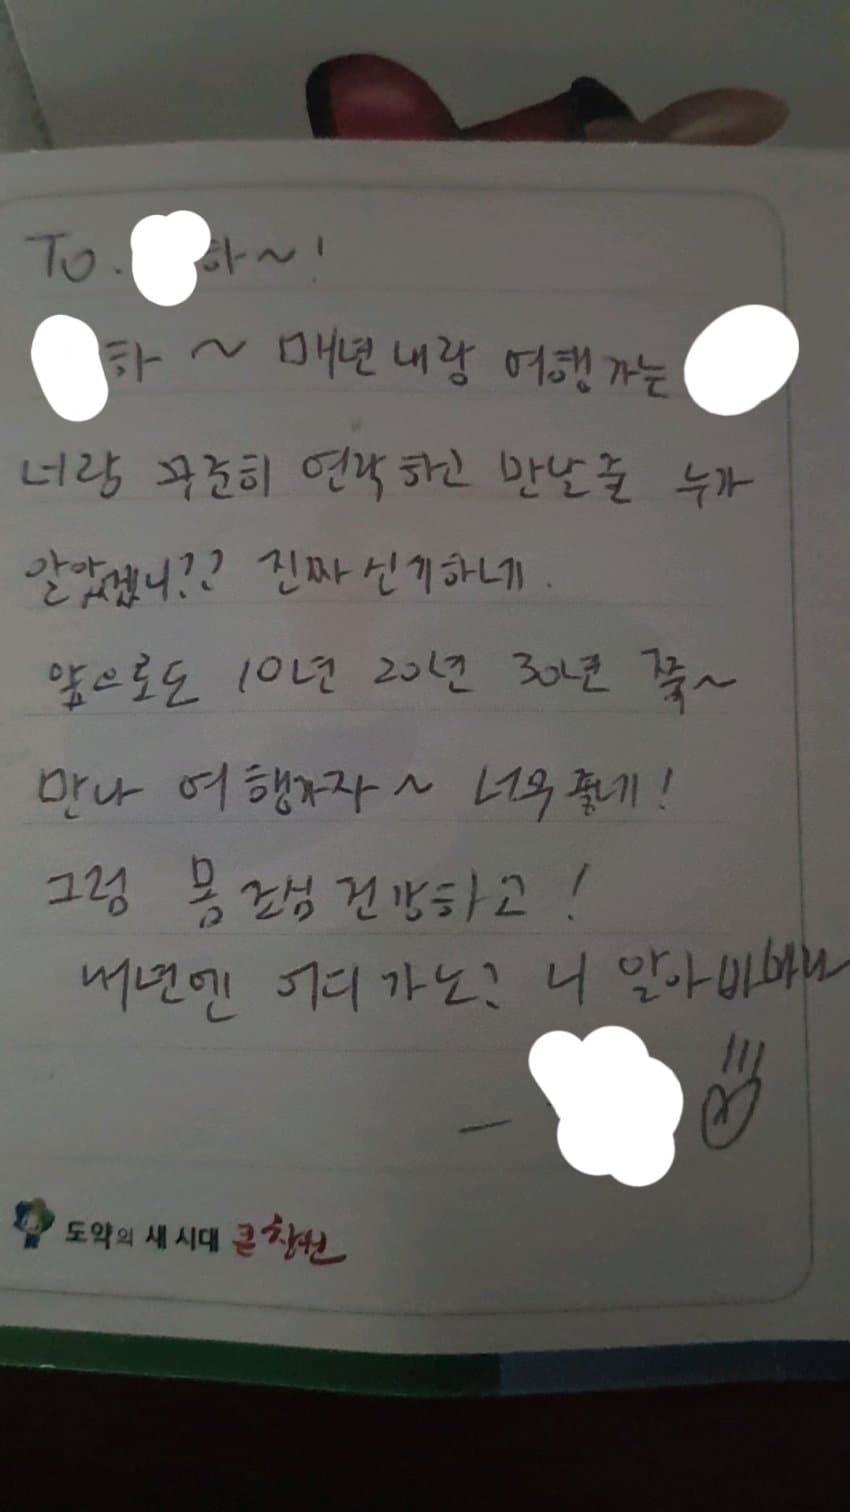 To. 하~!
하~ 매년 내랑 여행 가는
너랑 꾸준히 연락하고 만날줄 누가
알았겠니?? 진짜 신기하네.
앞으로도 10년 20년 30년 쭉~
만나 여행가자~ 너무 좋네!
그럼 몸 조심 건강하고!
내년엔 어디 가노? 니 알아봐봐라
도약의 새 시대 큰 창원